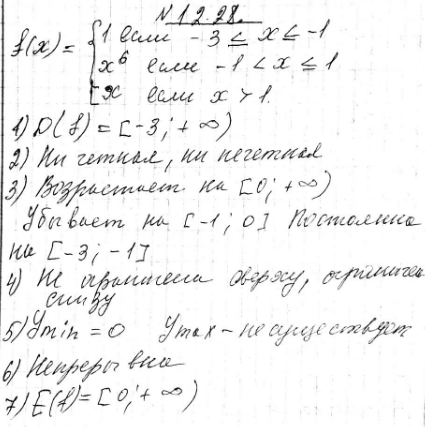 № 12.28.
f(x) = { 1 если -3 ≤ x ≤ -1
x⁶ если -1 < x ≤ 1
x если x > 1.
1) D(f) = [-3; +∞)
2) Ни четная, ни нечетная
3) Возрастает на [0; +∞)
Убывает на [-1; 0] Постоянна
на [-3; -1]
4) Не ограничена сверху, ограничен
снизу
5) Ymin = 0 Ymax - не существует
6) Непрерывна
7) E(f) = [0; +∞)